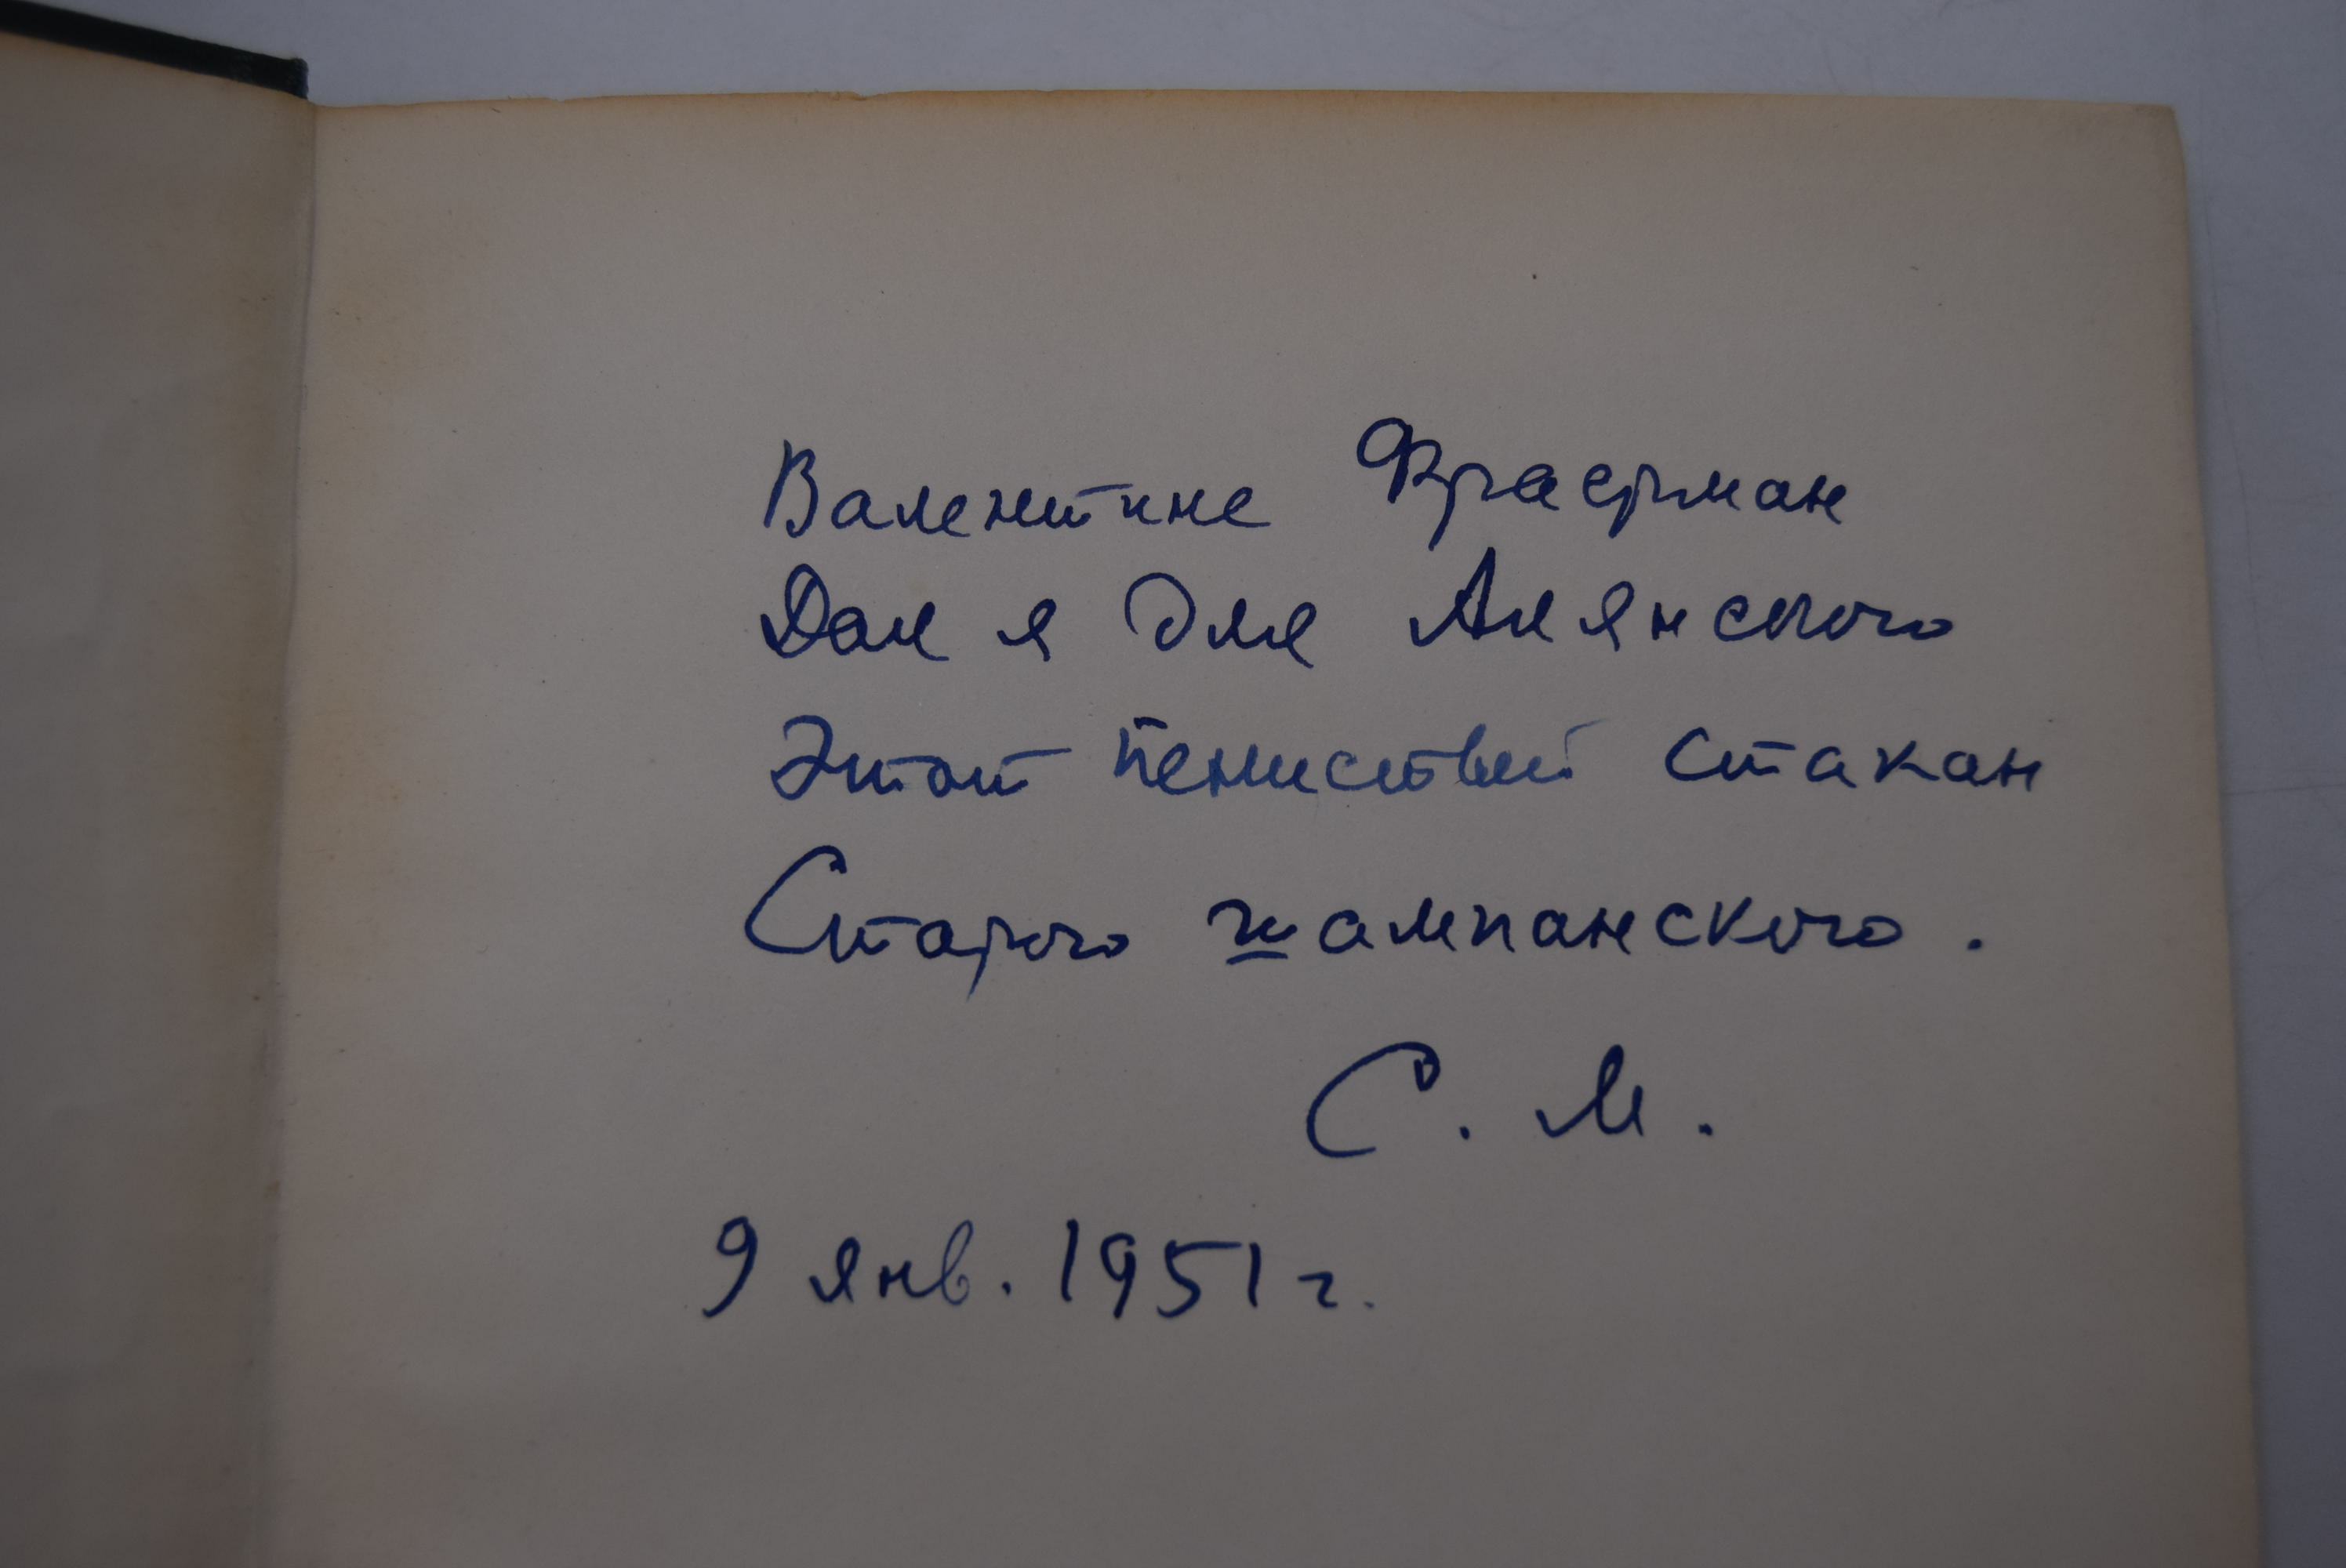 Валентине Фраерман
Дал я для Алянского
Этот пенистый стакан
Старого шампанского.
С. М.
9 янв. 1951 г.